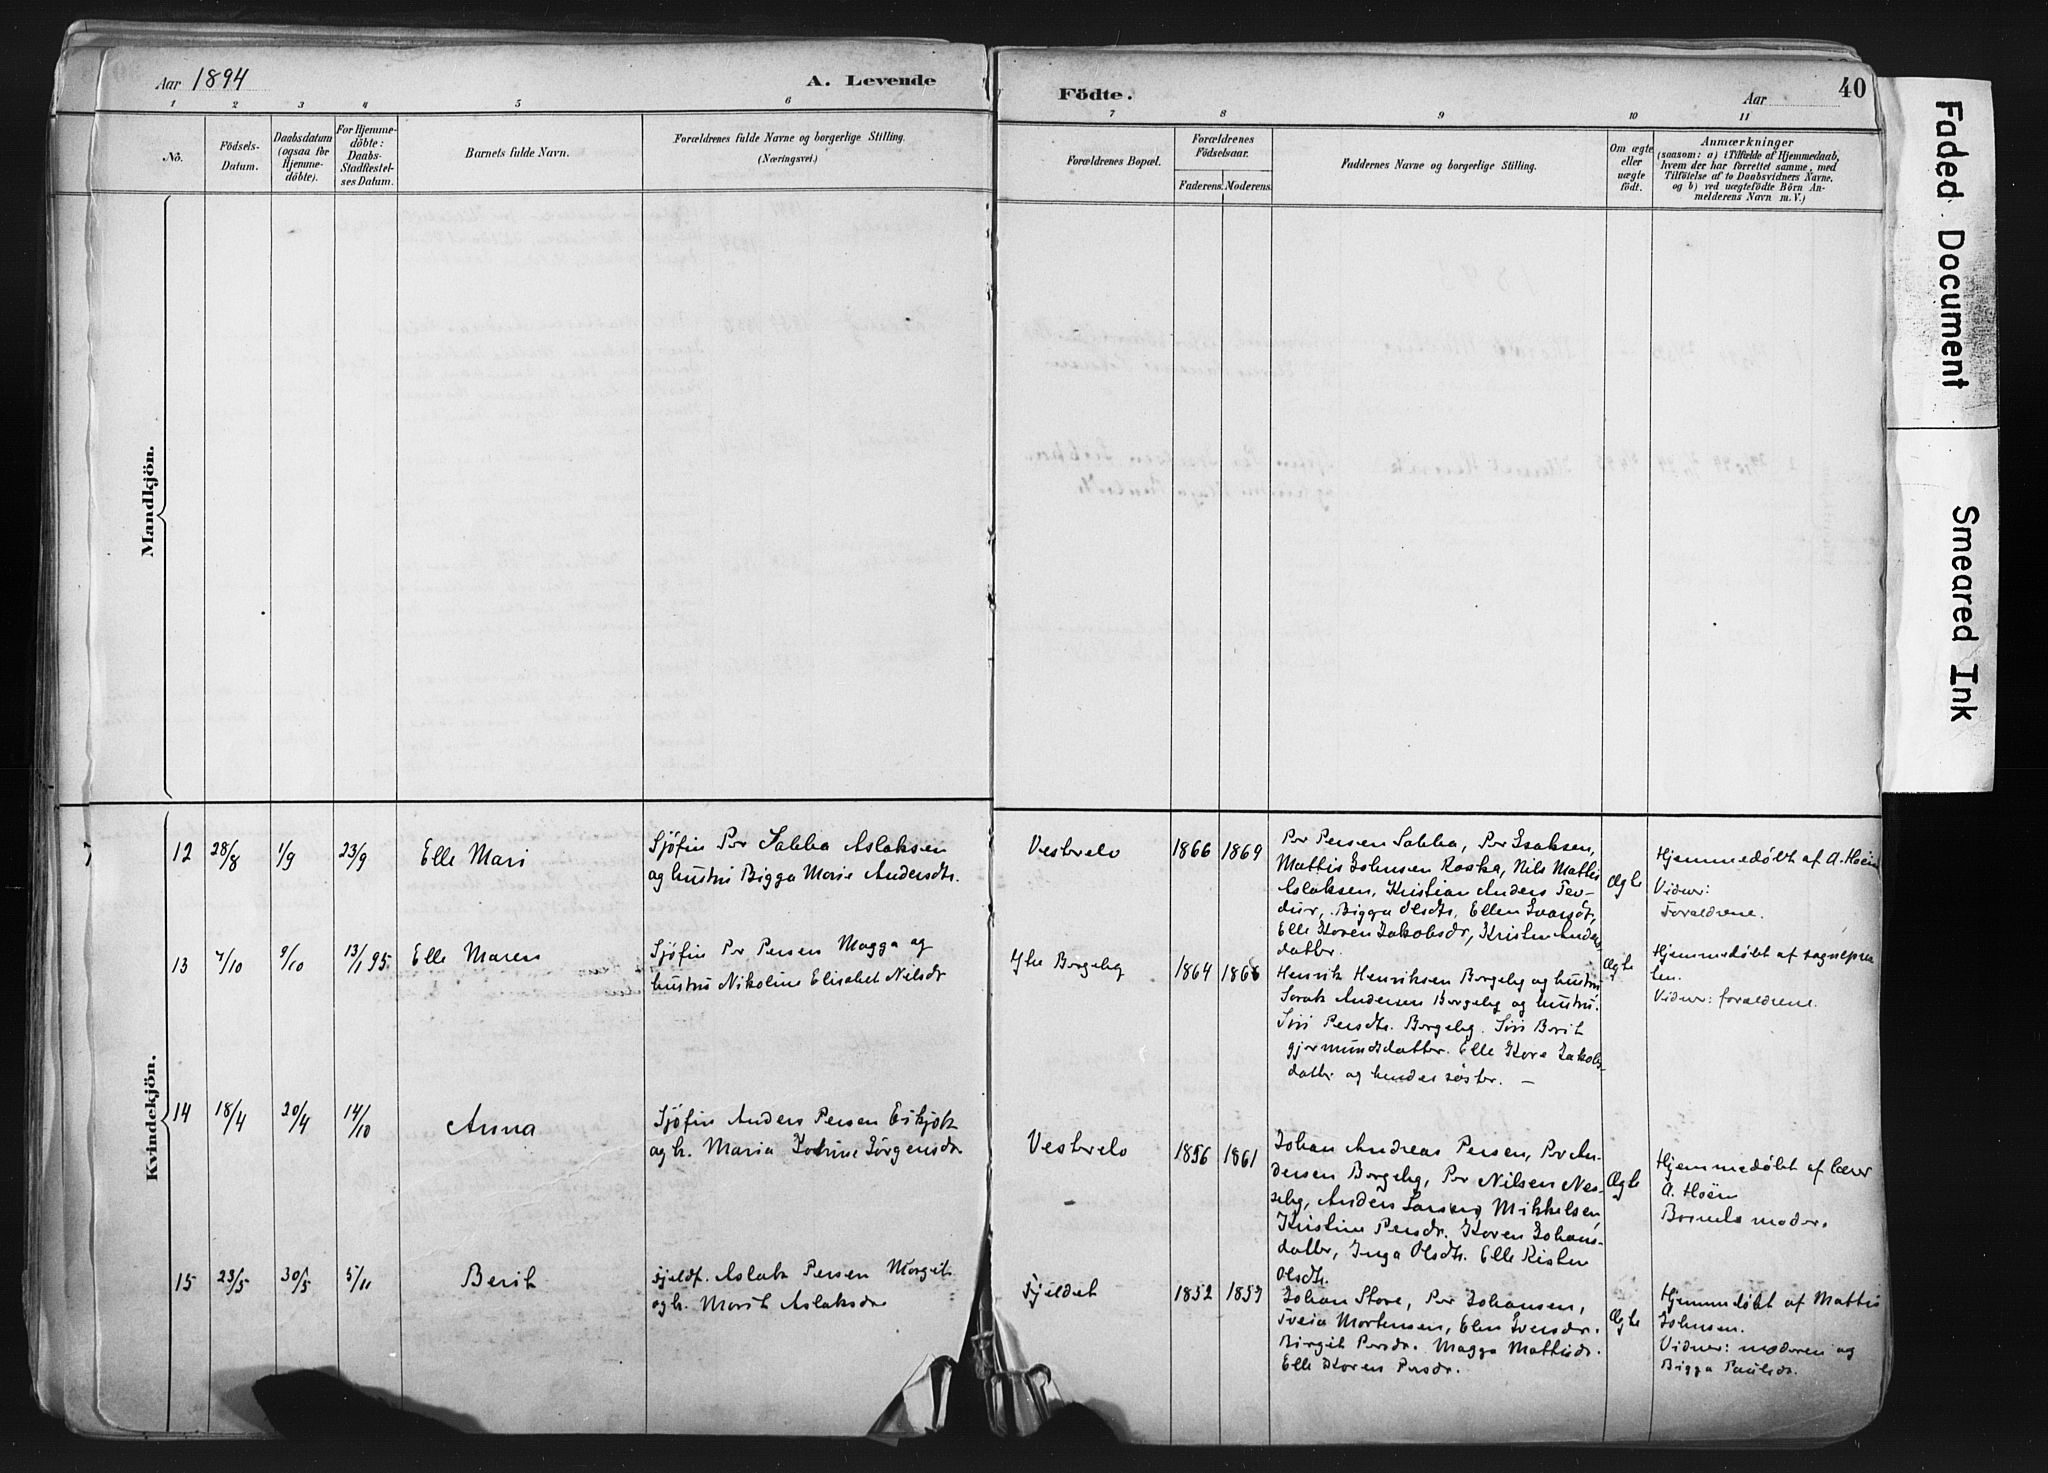 Aar 1894
A. Levende
Födte.
Aar
40
1 2 3 4 5 6 7 8 9 10 11
No.
Födsels-
Datum.
Daabsdatum
(ogsaa for
Hjemme-
döbte).
For Hjemme-
döbte:
Daabs-
Stadfæstel-
ses Datum.
Barnets fulde Navn.
Forældrenes fulde Navne og borgerlige Stilling.
(Næringsvei.)
Forældrenes Bopæl.
Forældrenes
Födselsaar.
Faderens. Moderens.
Faddernes Navne og borgerlige Stilling.
Om ægte
eller
uægte
födt.
Anmærkninger
(saasom: a) i Tilfælde af Hjemmedaab,
hvem der har forrettet samme, med
Tilföielse af to Daabsvidners Navne.
og b) ved uægtefödte Börn An-
melderens Navn m. V.)
Mandkjön.
Kvindekjön.
12 28/8 1/9 23/9 Elle Mari
Sjøfin Per Sabba Aslaksen
og hustru Bigga Marie Andersdtr.
Vestrelv 1866 1869
Per Persen Sabba, Per Isaksen,
Mattis Johnsen Kaska, Nils Mattis
Aslaksen, Kristian Anders Peder-
Bigga Olsdtr, Ellen Ivarsdtr,
Elle Karen Jakobsdr, Kristen Anders-
datter.
Ægte
Hjemmedøbt af A. Hoëm
Vidner:
Foraeldrene.
13 7/10 9/10 13/1 95. Elle Maren
Sjøfin Per Persen Magga og
hustru Nikoline Elisabet Nilsdr
Ytre Borgeby 1864 1866
Henrik Henriksen Borgeby og hustru
Anderson Borgeby og hustru.
Siri Persdtr. Borgeby. Siri Berit
gjermundsdatter. Elle Kare Jakobs-
datter og hendes søster. —
Ægte
Hjemmedøbt af sognepres-
ten.
Vidner: foraeldrene.
14 18/4 20/4 14/10 Anna
Sjøfin Anders Persen Eskjok
og h. Maria Katrine Jørgensdr
Vestrelv 1856 1861
Johan Andreas Persen, Per An-
dersen Borgeby, Per Nilsen Nes-
seby, Anders Larsen Mikkelsen,
Kristine Persdr. Karen Johans-
datter, Inga Olsdtr. Elle Kisten
Olsdtr.
Ægte
Hjemmedøbt af lærer
A. Hoëm
Barnets moder.
15 23/5 30/5 5/11 Berit
Fjeldf. Aslak Persen Morgit
og h. Marit Aslaksdr
Fjeldet 1852 1859
Johan Store, Per Johansen,
Mortensen, Elen Iversdr.
Birgit Persdr. Magga Mattisdr.
Elle Karen Persdr.
Ægte
Hjemmedøbt af Mattis
Johnsen.
Vidner: moderen og
Bigga Paulsdr.
Faded Document
Smeared Ink